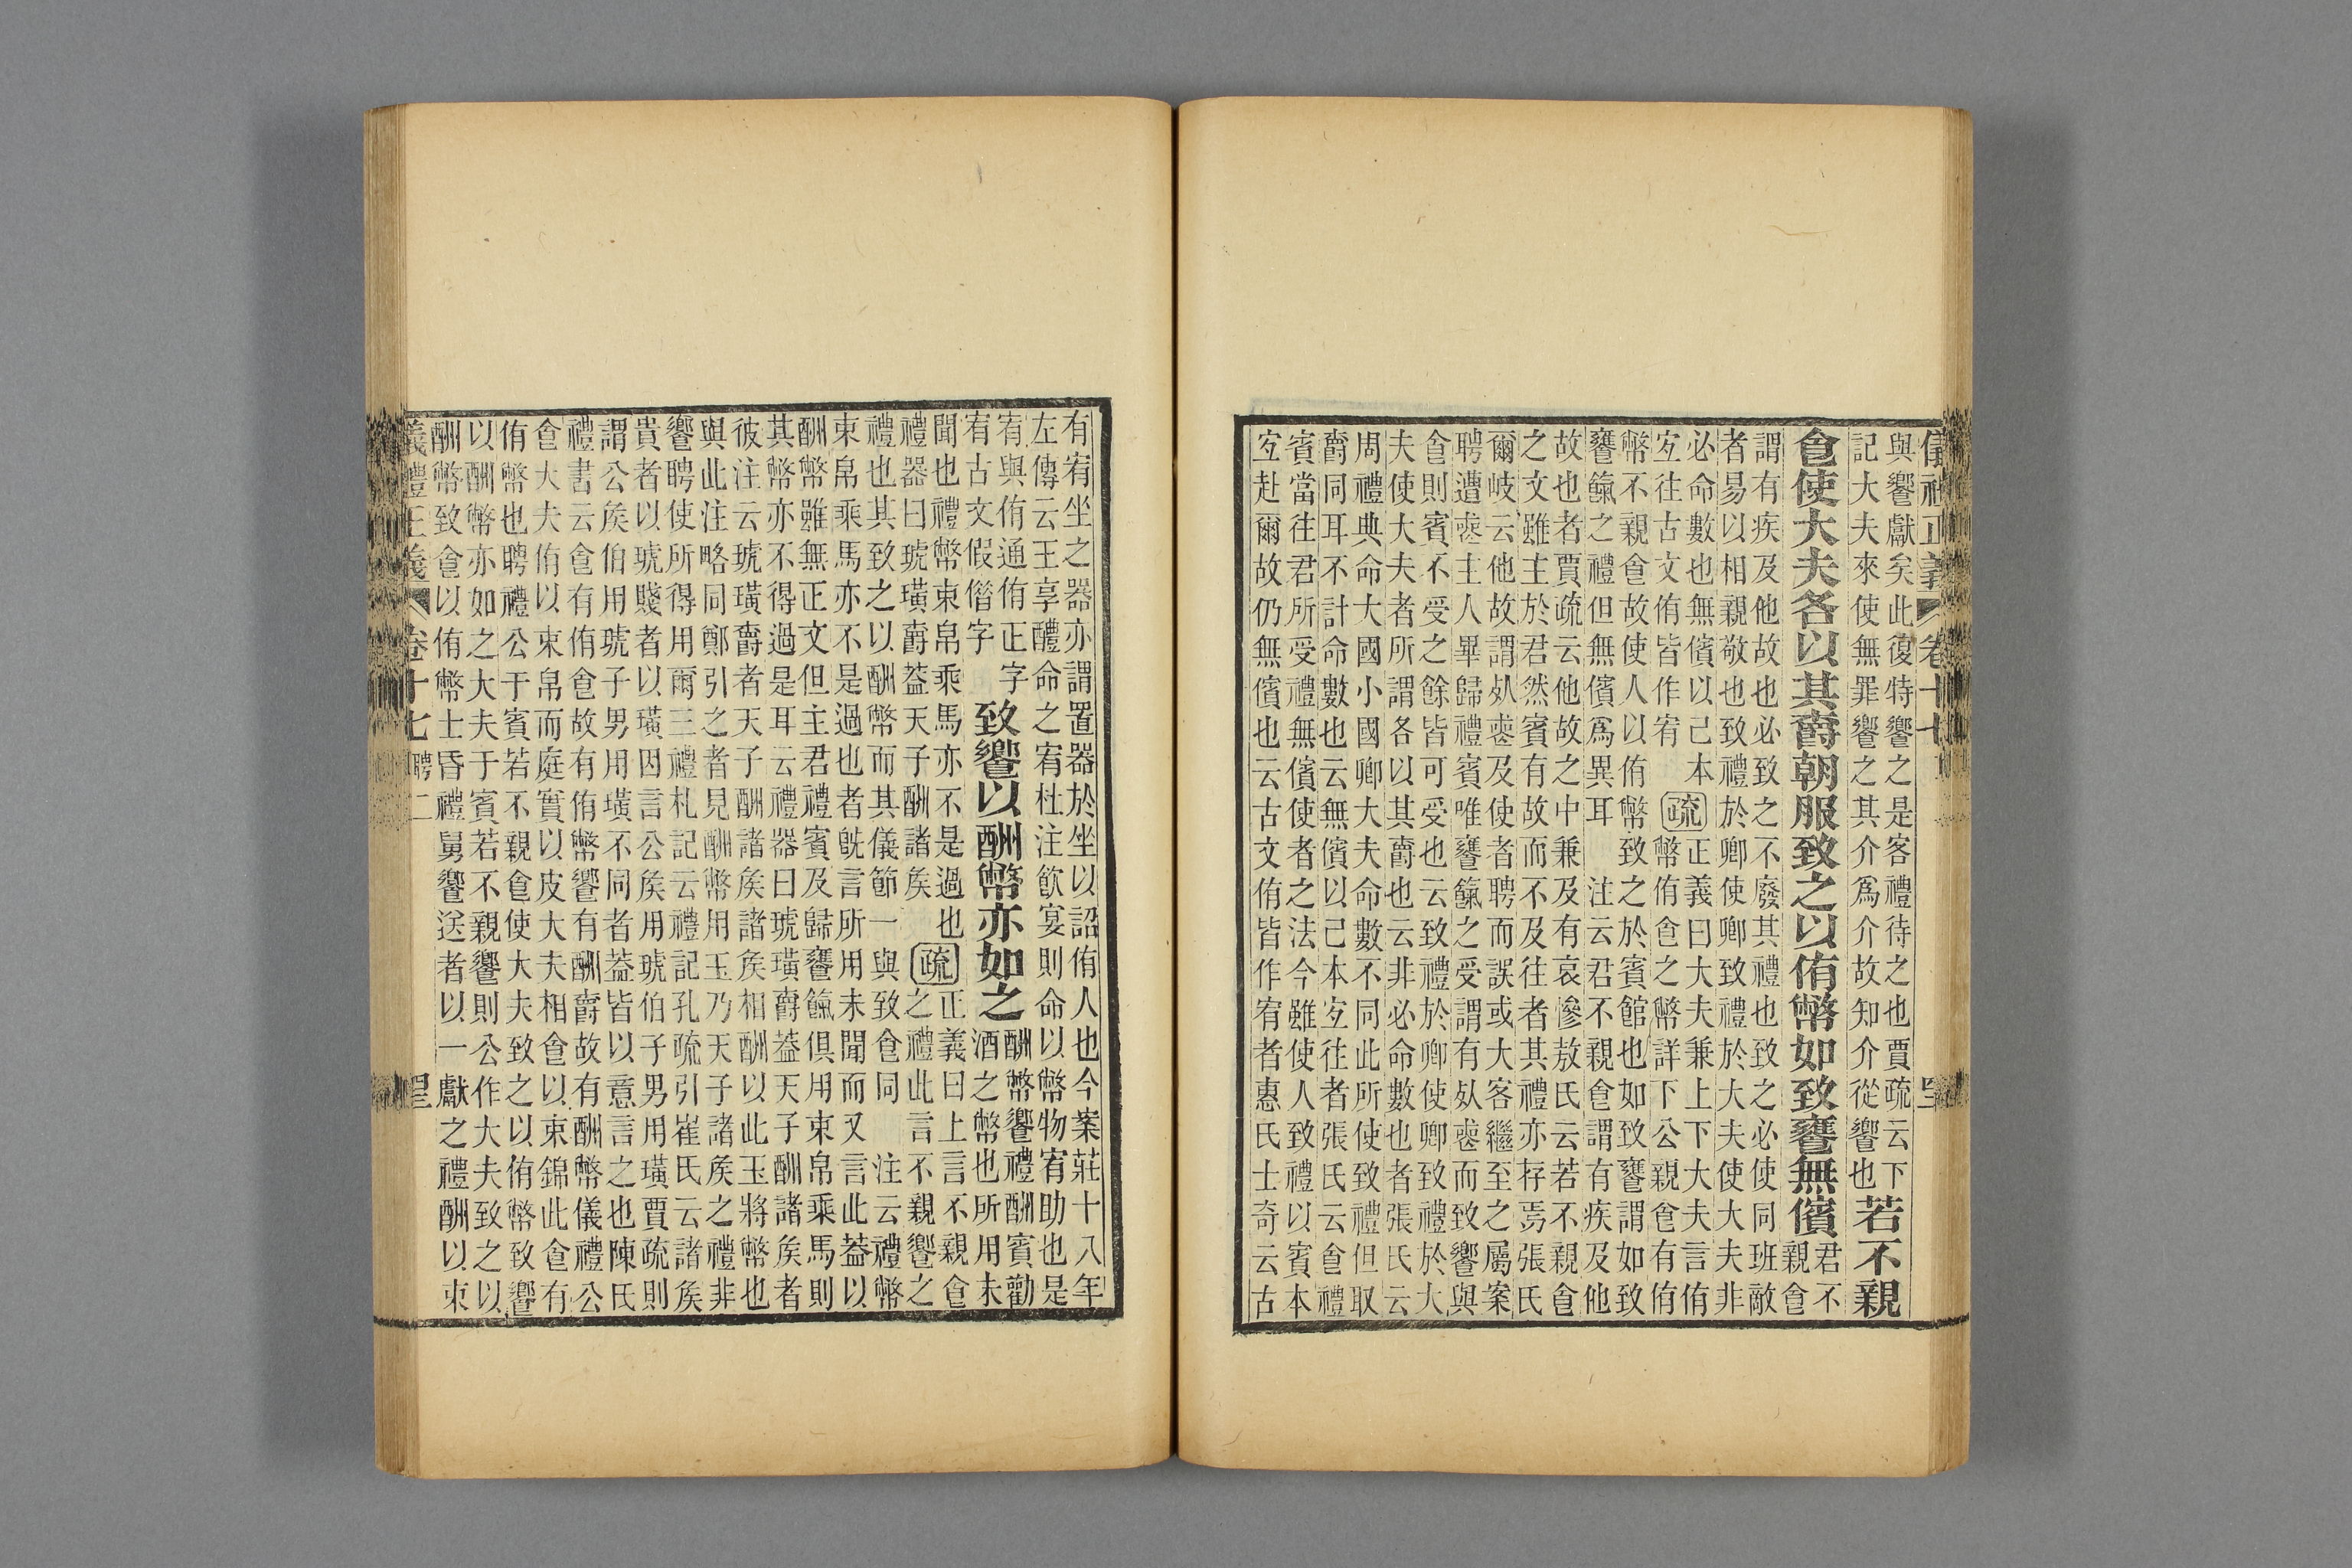 儀禮正義 卷十七
與饗獻矣此復特饗之是客禮待之也賈疏云下
記大夫來使無罪饗之其介爲介故知介從饗也若不親
食使大夫各以其爵朝服致之以侑幣如致饔無儐
君不
親食
謂有疾及他故也必致之不廢其禮也致之必使同班敵
者易以相親敬也致禮於卿使卿致禮於大夫使大夫非
必命數也無儐以己本
宐往古文侑皆作宥
疏
正義曰大夫兼上下大夫言侑
幣侑食之幣詳下公親食有侑
幣不親食故使人以侑幣致之於賓館也如致饔謂如致
饔餼之禮但無儐爲異耳 注云君不親食謂有疾及他
故也者賈疏云他故之中兼及有哀慘敖氏云若不親食
之文雖主於君然賓有故而不及往者其禮亦存焉張氏
爾岐云他故謂死喪及使者聘而誤或大客繼至之屬案
聘遭喪主人畢歸禮賓唯饔餼之受謂有死喪而致饗與
食則賓不受之餘皆可受也云致禮於卿使卿致禮於大
夫使大夫者所謂各以其爵也云非必命數也者張氏云
周禮典命大國小國卿大夫命數不同此所使致禮但取
爵同耳不計命數也云無儐以己本宐往者張氏云食禮
賓當往君所受禮無儐使者之法今雖使人致禮以賓本
宐赴爾故仍無儐也云古文侑皆作宥者惠氏士奇云古
有宥坐之器亦謂置器於坐以詔侑人也今案莊十八年
左傳云王享醴命之宥杜注飲宴則命以幣物宥助也是
宥與侑通侑正字
宥古文假僭字
致饗以酬幣亦如之
酬幣饗禮酬賓勸
酒之幣也所用未
聞也禮幣束帛乘馬亦不是過也
禮器曰琥璜爵蓋天子酬諸矦
疏
正義曰上言不親食
之禮此言不親饗之
禮也其致之以酬幣而其儀節一與致食同 注云禮幣
束帛乘馬亦不是過也者旣言所用未聞而又言此蓋以
酬幣雖無正文但主君禮賓及歸饔餼俱用束帛乘馬則
其幣亦不得過是耳云禮器曰琥璜爵蓋天子酬諸矦者
彼注云琥璜爵者天子酬諸矦諸矦相酬以此玉將幣也
與此注略同鄭引之者見酬幣用玉乃天子諸矦之禮非
饗聘使所得用爾三禮札記云禮記孔疏引崔氏云諸矦
貴者以琥賤者以璜因言公矦用琥伯子男用璜賈疏則
謂公矦伯用琥子男用璜不同者蓋皆以意言之也陳氏
禮書云食有侑食故有侑幣饗有酬爵故有酬幣儀禮公
食大夫侑以束帛而庭實以皮大夫相食以束錦此食有
侑幣也聘禮公于賓若不親食使大夫致之以侑幣致饗
以酬幣亦如之大夫于賓若不親饗則公作大夫致之以
酬幣致食以侑幣士昏禮舅饗送者以一獻之禮酬以束
儀禮正義 卷十七 聘二